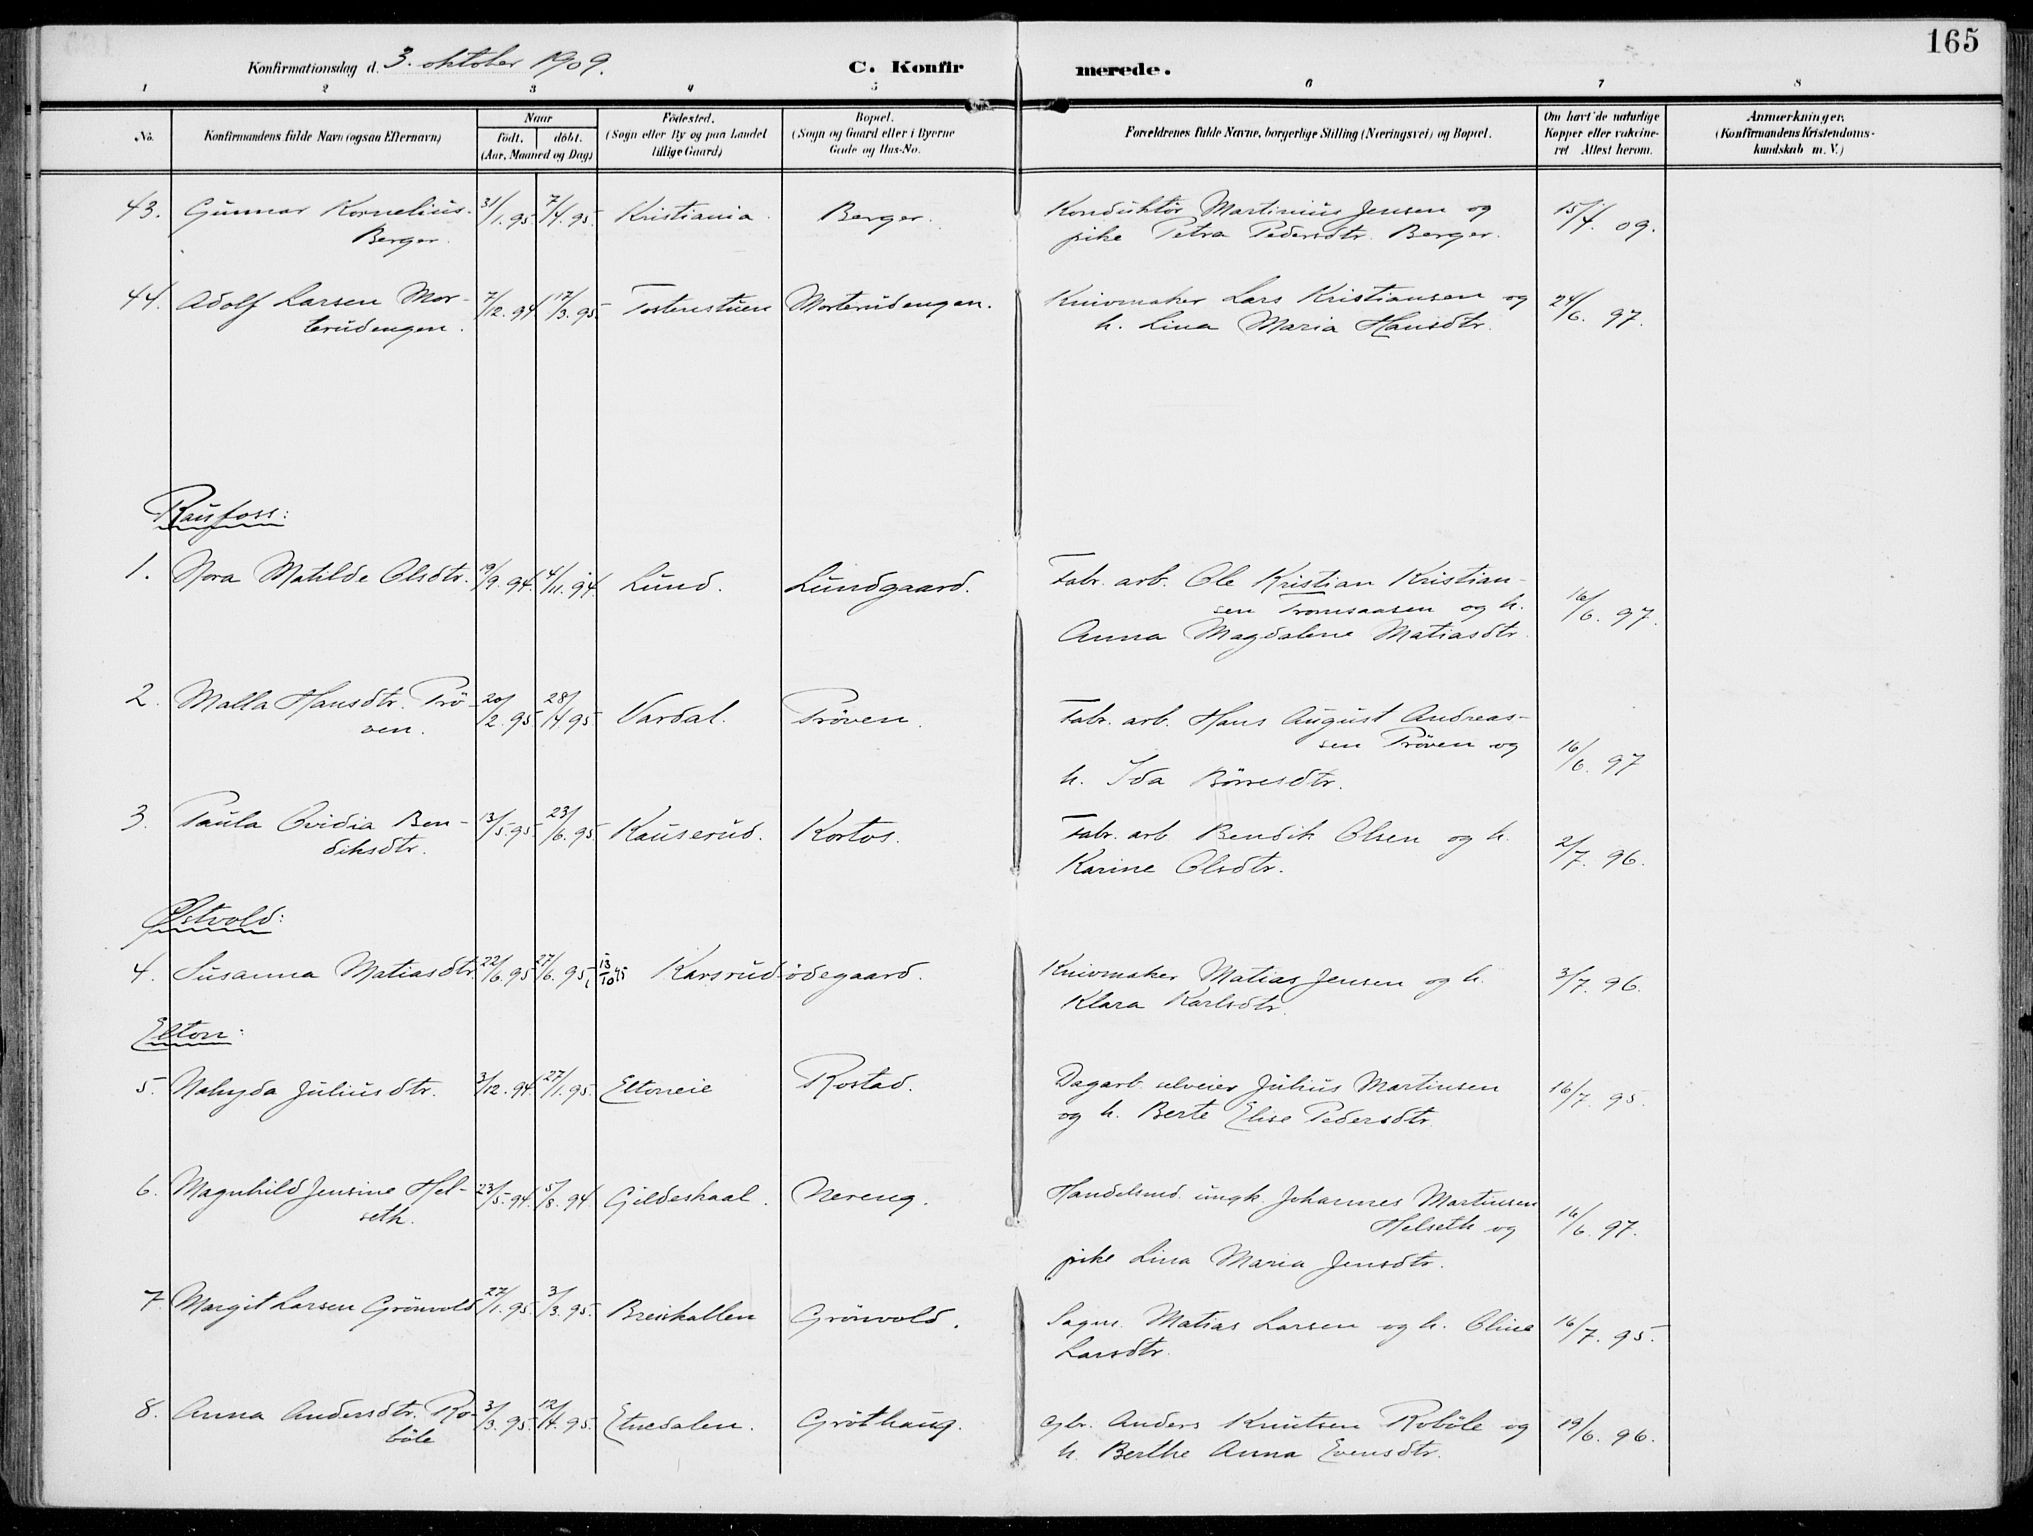 165
Konfirmationsdag d. 3. oktober 1909.
C. Konfirmerede.
1 2 3 4 5 6 7 8
No. Konfirmandens fulde Navn (ogsaa Efternavn) Naar født. døbt. (Aar, Maaned og Dag)
Fødested. (Sogn eller By og paa Landet tillige Gaard)
Bopæl. (Sogn og Gaard eller i Byerne Gade og Hus-No.
Forældrenes fulde Navne, borgerlige Stilling (Næringsvei) og Bopæl.
Om havt de naturlige Kopper eller vakcineret Attest herom.
Anmærkninger. (Konfirmandens Kristendomskundskab m. V.)
43. Gunnar Kornelius- 31/1.95. 7/4.95. Kristiania. Berger. Konduktör Martinius Jensen og 15/4. 09.
Berger. pike Petra Pedersdtr. Berger.
44. Adolf Larsen Mor- 7/12.94 17/3.95. Tostenstuen Morterudengen. Knivmaker Lars Kristiansen og 24/6. 97.
terudengen. h. Lina Maria Hansdtr.
Raufoss:
1. Nora Matilde Olsdtr. 19/9.94. 4/11.94 Lund. Lundgaard. Fabr. arb. Ole Kristian Kristian-
sen Tromsaasen og h. 16/6. 97.
Anna Magdalene Matiasdtr.
2. Malla Hansdtr. Prö- 20/2.95 28/4 95 Vardal. Pröven. Fabr. arb. Hans August Andreas-
ven. sen Pröven og 16/6. 97
h. Ida Börresdtr.
3. Paula Ovidia Ben- 13/5.95. 23/6.95. Kauserud. Kortos. Fabr. arb. Bendik Olsen og h. 2/7. 96.
diksdtr. Karine Olsdtr.
Østvold:
4. Susanna Matiasdtr. 22/6.95 27/6.95 i 13/10 95 Karsrud ödegaard. Knivmaker Matias Jensen og h. 3/7. 96.
Klara Karlsdtr.
Elton:
5. Nahyda Juliusdtr. 3/12.94 27/1.95. Eltoneie Rostad. Dagarb. selveier Julius Martinsen 16/7. 95.
og h. Berte Elise Pedersdtr.
6. Magnhild Jensine Hel- 23/5.94. 5/8.94. Gildeskaal. Nereng. Handelsmd. ungk. Johannes Martinsen
seth. Helseth og 16/6. 97.
pike Lina Maria Jensdtr.
7. Margit Larsen Grönvold 27/1.95. 3/3.95. Breiskallen Grönvold. Sagm. Matias Larsen og h. Oline 16/7. 95.
Larsdtr.
8. Anna Andersdtr. Ro- 3/3.95. 12/4.95. Etnedalen. Gröthaug. gbr. Anders Knutsen Roböle og 19/6. 96.
böle h. Berthe Anna Evensdtr.